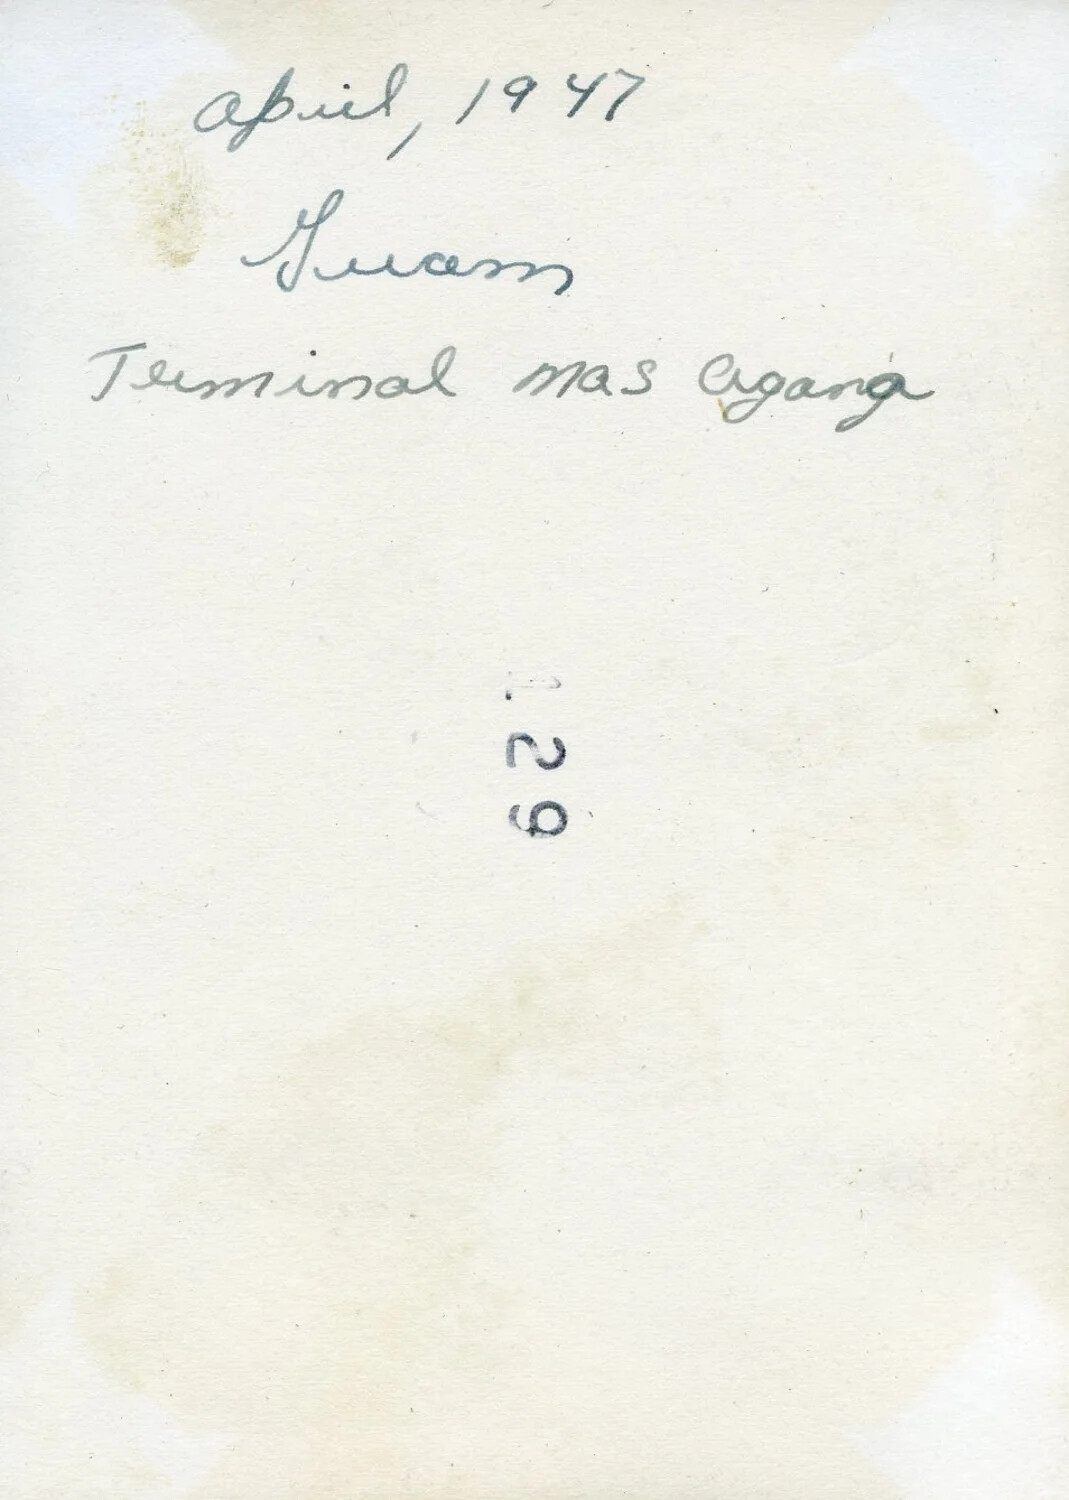 April, 1947
Guam
Terminal mas Agana
129